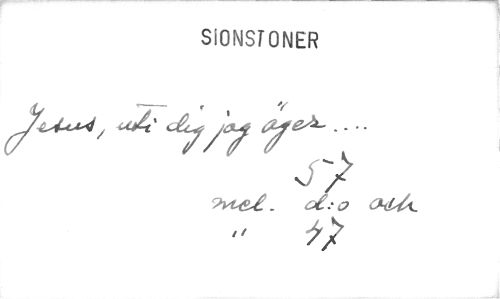 SIONSTONER
Jesus, uti dig jag äger....
57
mel. d:o och
" 47